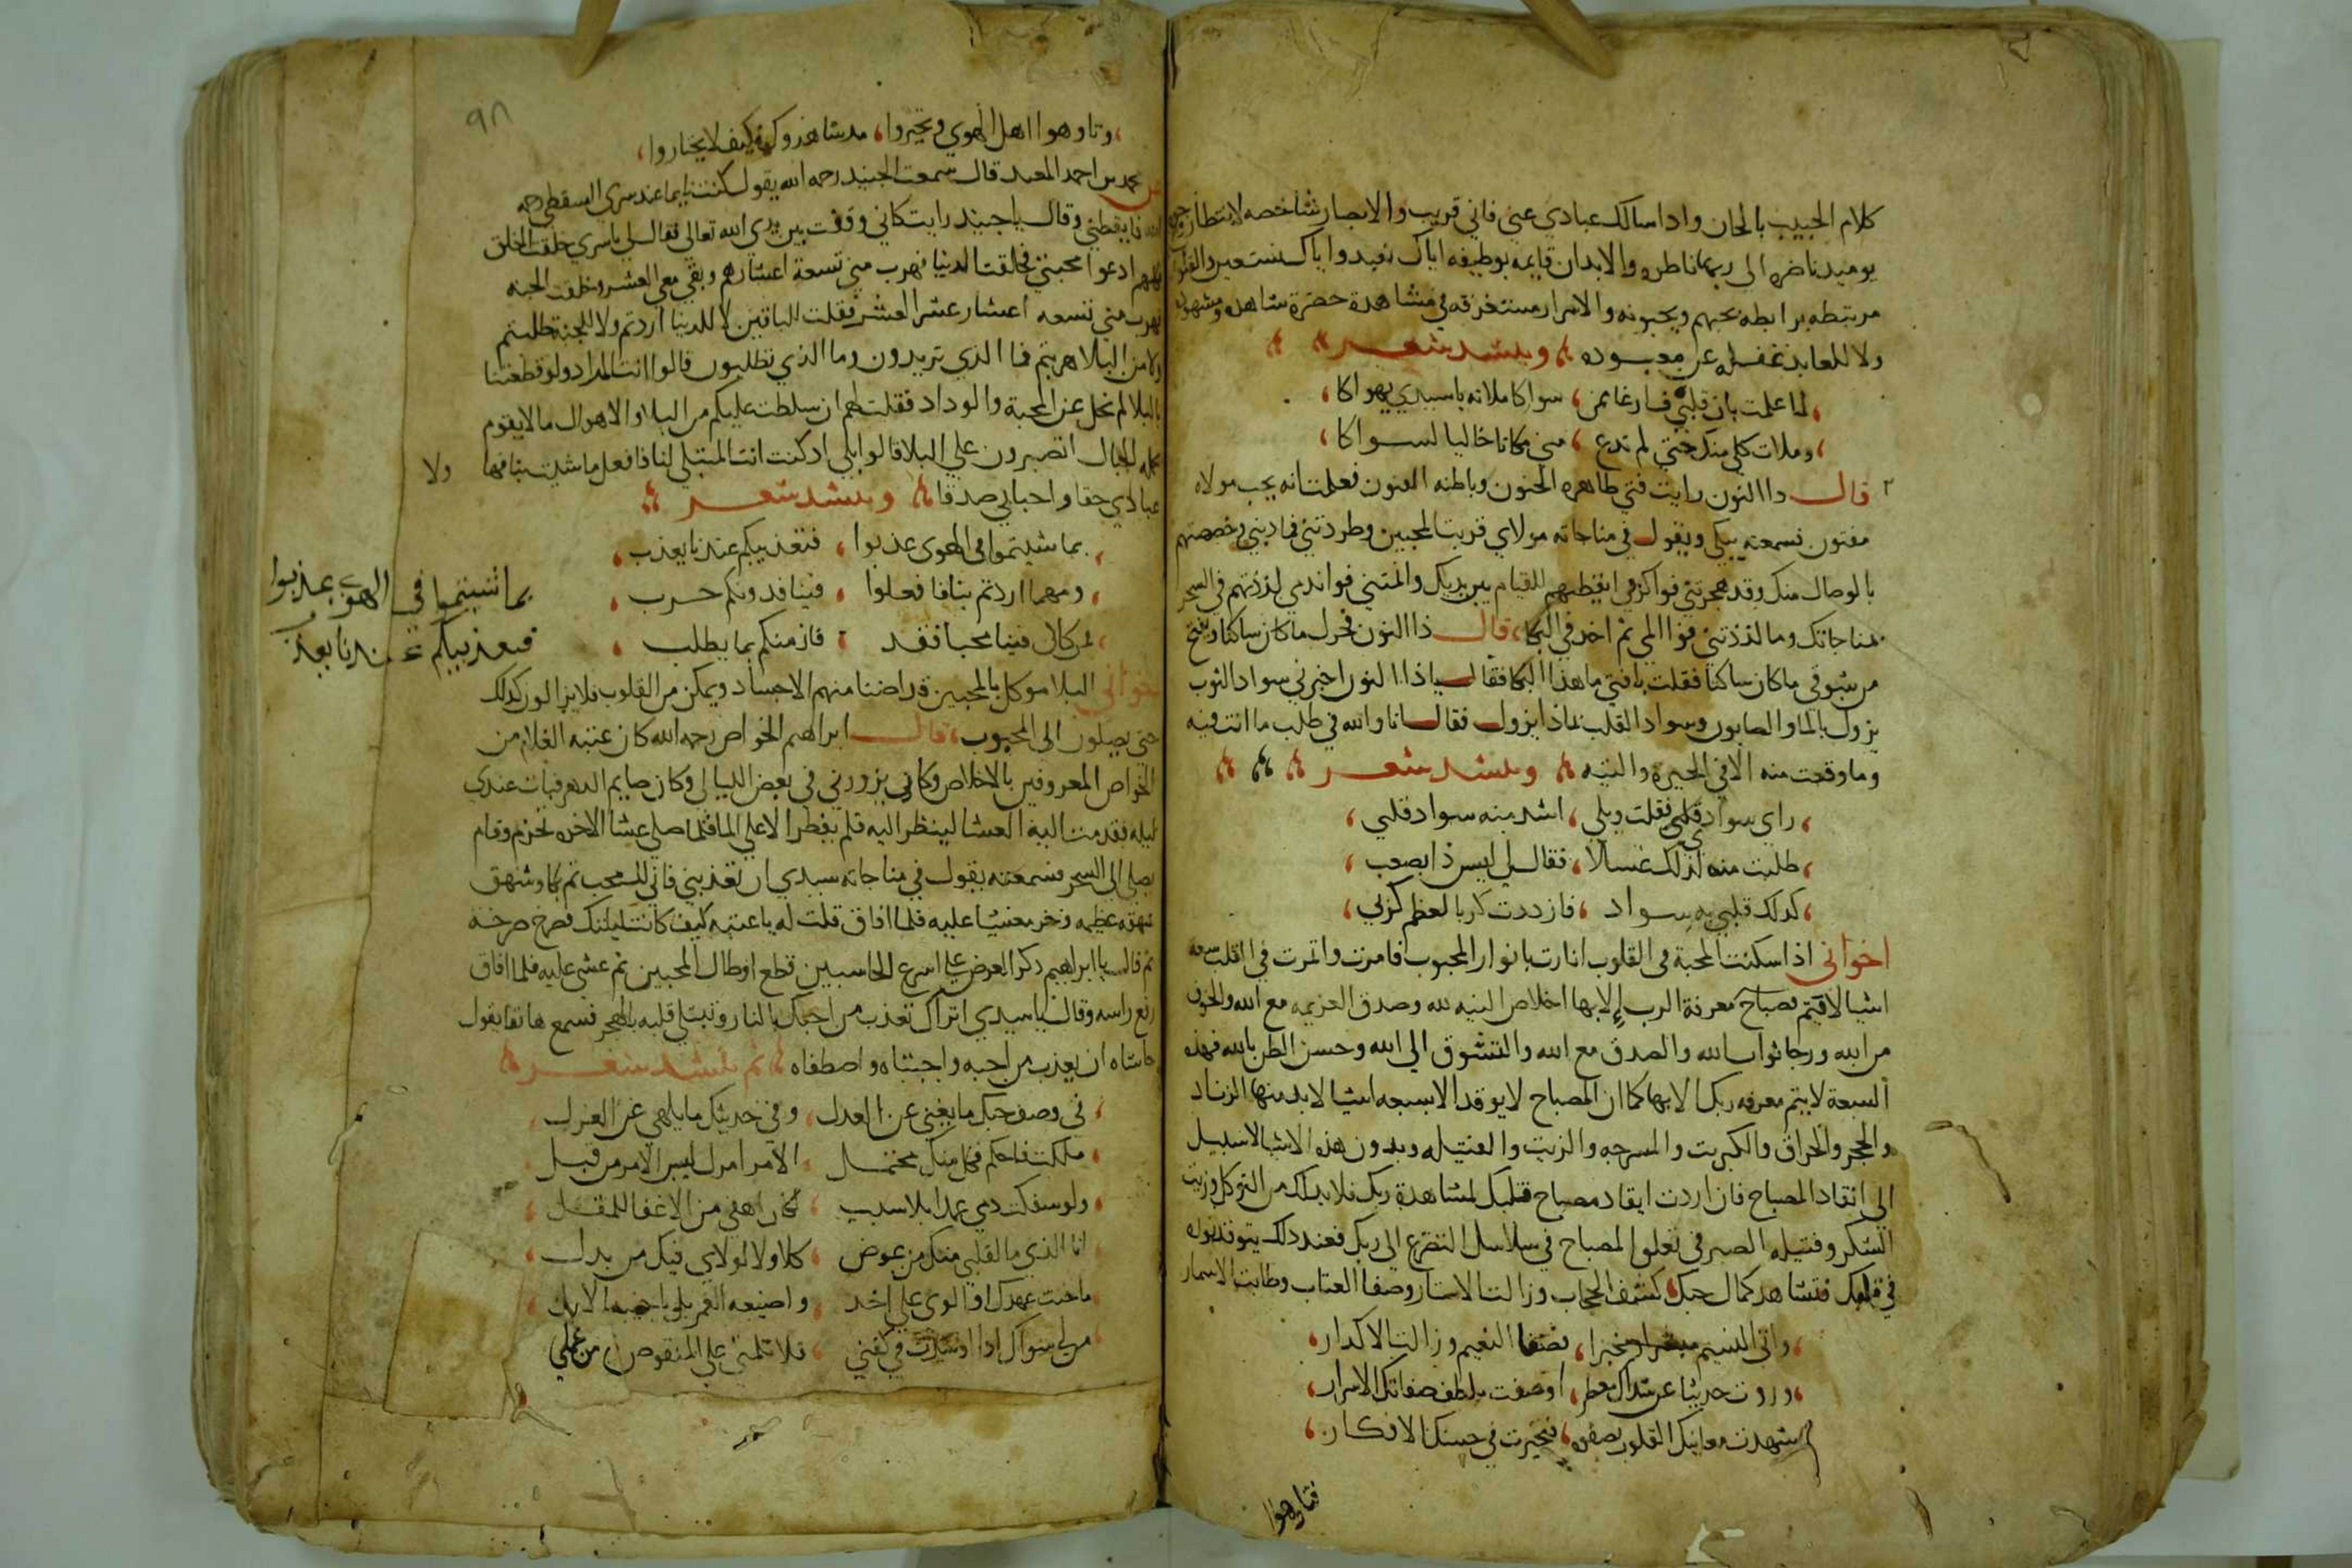 كلام الحبيب بالحان واداسالك عبادي عني فاني قريب والابصار شاخصه لانتظار وجوه
يوميد ناضره الى ربها ناطره والابدان قايمه بوظيفه اياك نعبد واياك نستعين والقلوب
مرتبطه برابطه يحبهم ويحبونه والاسرار مستغرقه في مشاهدة حضرة شاهد ومشهود
ولا للعابد غفله عن معبوده وينشد شعر
لما علمت بان قلبي فارغا ممن سواكا ملاته ياسيدي بهواكا
وملات كلي منك حتي لم تدع مني مكانا خاليا لسواكا
قال داالنون رايت فتي ظاهره الجنون وباطنه الفنون فعلمت انه يحب مولاه
مفتون فسمعته يبكي ويقول في مناجاته مولاي قربت المحبين وطردتني فما ديني وخصصتهم
بالوصال منك وقد هجرتني فواكربي ايقظتهم للقيام بين يديك وانمتني فواندمي لذذتهم في السحر
بمناجاتك وما لذذتني فواالمي ثم اخد في البكا قال ذاالنون فحرك ماكان ساكنا وهيج
من شوقي ماكان ساكنا فقلت يافتي ماهذا البكا فقال ياذاالنون اخبرني سواد الثوب
يزول بالما والصابون وسواد القلب بماذا يزول فقال انا والله في طلب ما انت فيه
وما وقعت منه الا في الحيرة والتيه وينشد شعر
راي سواد قلبي فقلت ويلي اشد منه سواد قلبي
طلبت منه لذلك غسالا فقال لي ليس ذا يصعب
كدلك قلبي به سواد فازددت كربا لعظم كربي
اخواني اذا سكنت المحبة في القلوب انارت بانوار المحبوب فامرت واثمرت في القلب سبعه
اشيا لا يتم مصباح معرفة الرب الا بها اخلاص النيه لله وصدق العزيمه مع الله والخوف
من الله ورجا ثواب الله والصدق مع الله والتشوق الي الله وحسن الظن بالله فهذه
السبعة لا يتم معرفه ربك الا بها كما ان المصباح لا يوقد الا بسبعه اشيا لابد منها الزناد
والحجر والحراق والكبريت والمسرجه والزيت والفتيله وبدون هذه الاشيا لا سبيل
الي اتقاد المصباح فان اردت ايقاد مصباح قلبك لمشاهدة ربك فلابد لك من التوكل وزيت
الشكر وفتيله الصبر في تعلوا المصباح في سلاسل التضرع الى ربك فعند دلك يتوقد نوره
في قلبك فتشاهد كمال حبك كشف الحجاب وزالت الاستار وصفا العتاب وطابت الاسمار
واتى النسيم مبشرا ومخبرا فصفا النعيم وزالت الاكدار
وروت حديثا عن شذاك معطر اوصفت بلطف صفاتك الاسرار
شهدت معانيك القلوب بصفوه فتحيرت في حسنك الافكار
فتاوهوا
٩٨
وتاوهوا اهل الهوي وتحيروا مدشاهدوك فكيف لا يختاروا
عن محمد بن احمد المعيد قال سمعت الجنيد رحمه الله يقول كنت نايما عند سرى السقطي رحمه
الله فايقظني وقال ياجنيد رايت كاني وقفت بين يدي الله تعالي فقال لي ياسري خلقت الخلق
كلهم ادعوا محبتي فخلقت الدنيا فهرب مني تسعة اعشارهم وبقي معي العشر وخلقت الجنه
فهرب مني تسعه اعشار عشر العشر فقلت للباقين لا للدنيا اردتم ولا للجنة طلبتم
ولا من البلا هربتم فما الذي تريدون وما الذي تطلبون قالوا انت المراد ولو قطعتنا
بالبلا لم نحل عن المحبة والوداد فقلت لهم ان سلطت عليكم من البلا والاهوال ما لا يقوم
بحمله الجبال اتصبرون علي البلا قالوا بلي اد كنت انت المبتلي لنا فافعل ماشيت بنا فها ولا
عبادي حقا واحبابي صدقا وينشد شعر
بما شيتموا في الهوى عذبوا فتعذيبكم عندنا يعذب
ومهما اردتم بنا فافعلوا فينا فدونكم حرب
فمن كان فينا محبا فقد فاز منكم بما يطلب
بما شيتموا في الهوى عذبوا
فتعذيبكم عندنا يعذب
اخواني البلا موكل بالمحبين قد اضنا منهم الاجساد ويمكن من القلوب فلايزالون كدلك
حتي يصلون الى المحبوب قال ابراهيم الخواص رحمه الله كان عتبه الغلام من
الخواص المعروفين بالاخلاص وكان يزورني في بعض الليالي وكان صايم الدهر فبات عندي
ليله فقدمت اليه العشا لينظر اليه فلم يفطر الا علي الما فلما صلي عشا الاخره تحزم وقام
يصلي الي السحر فسمعته يقول في مناجاته سيدي ان تعذبني فاني لك محب ثم بكا وشهق
شهقه عظيمه وخر مغشيا عليه فلما افاق قلت له ياعتبه كيف كانت ليلتك فصرخ صرخه
ثم قال ياابراهيم دكر العرض علي اسرع الحاسبين قطع اوطال المحبين ثم غشي عليه فلما افاق
رفع راسه وقال ياسيدي اتراك تعذب من احبك بالنار وتبتلي قلبه بالهجر فسمع هاتفا يقول
حاشاه ان يعذب من احبه واجتباه واصطفاه ثم ينشد شعر
في وصف حبك ما يغني عن العدل وفي حديثك ما يلهي عن الغزل
ملكت فاحكم فما منك محتمل الامر امرك ليس الامر من قبل
ولو سفكت دمي عمدا بلا سبب لكان اهنى من الاغفا للمقل
انا الذي ما لقلبي منك من عوض كلا ولا لولاي فيك من بدل
ماخنت عهدك اوالوى علي احد واضيعه العمر بل ياخيبه الامل
من لي سواك اذا ادرجت في كفني فلا تلمني علي المنقوص من عملي